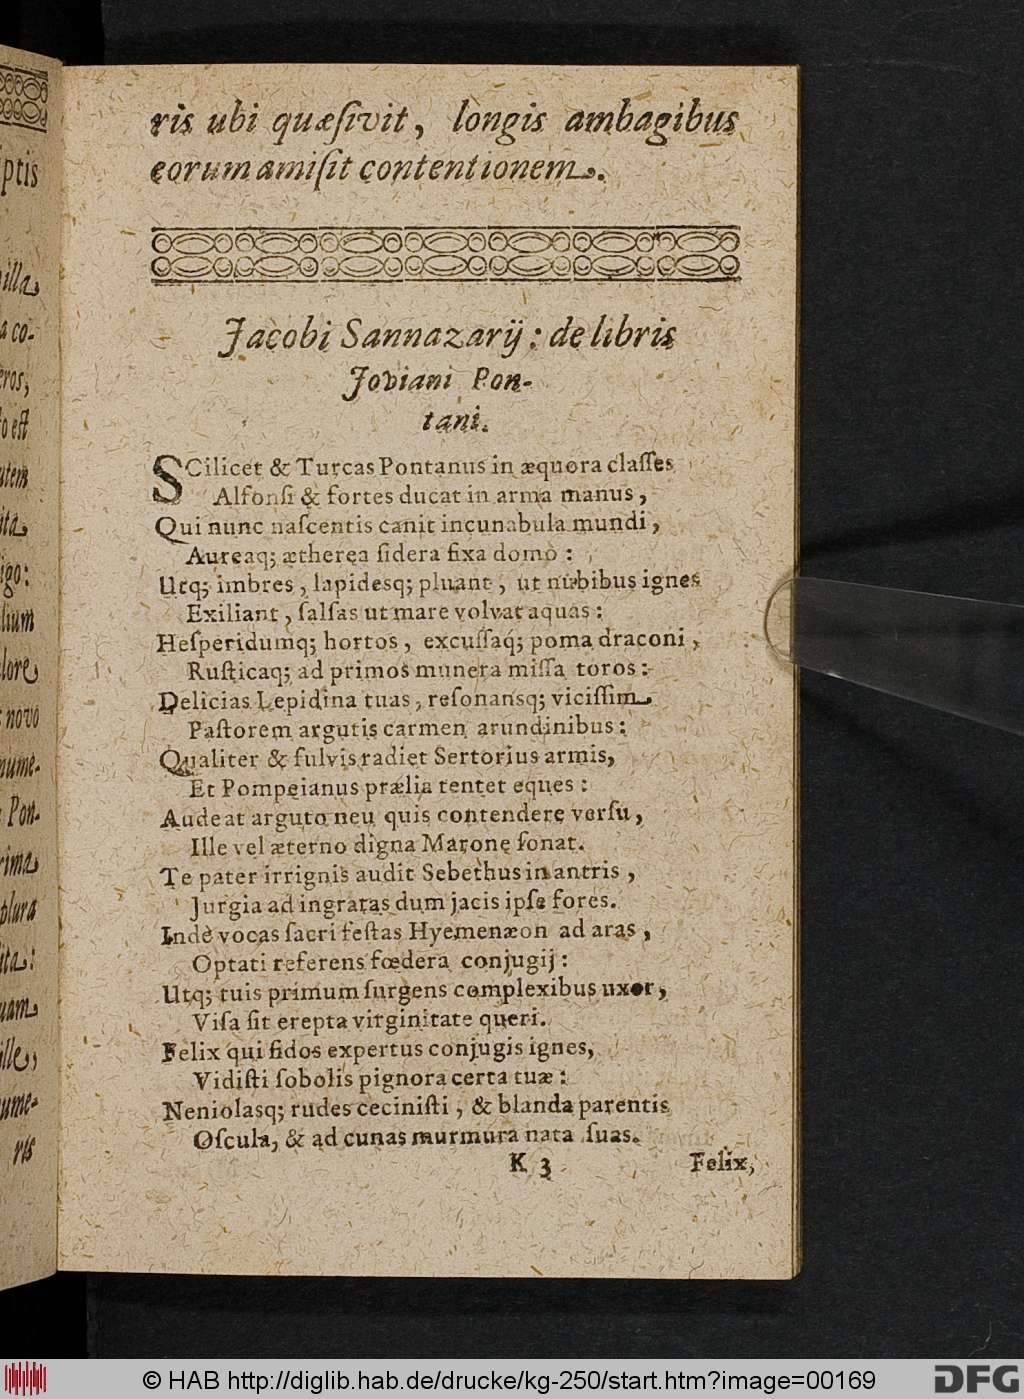 ris ubi quæſivit, longis ambagibus
eorum amiſit contentionem.
Jacobi Sannazarij: de libris
Joviani Pon-
tani.
SCilicet & Turcas Pontanus in æquora claſſes
Alfonſi & fortes ducat in arma manus,
Qui nunc naſcentis canit incunabula mundi,
Aureaq; ætherea ſidera fixa domo:
Utq; imbres, lapidesq; pluant, ut nubibus ignes
Exiliant, ſalſas ut mare volvat aquas:
Heſperidumq; hortos, excuſſaq́; poma draconi,
Ruſticaq; ad primos munera miſſa toros:
Delicias Lepidina tuas, reſonansq; viciſſim
Paſtorem argutis carmen arundinibus:
Qualiter & fulvis radiet Sertorius armis,
Et Pompeianus prælia tentet eques:
Audeat arguto neu quis contendere verſu,
Ille vel æterno digna Marone ſonat.
Te pater irrignis audit Sebethus in antris,
Jurgia ad ingratas dum jacis ipſe fores.
Indè vocas ſacri feſtas Hyemenæon ad aras,
Optati referens fœdera conjugij:
Utq; tuis primum ſurgens complexibus uxor,
Viſa ſit erepta virginitate queri.
Felix qui fidos expertus conjugis ignes,
Vidiſti ſobolis pignora certa tuæ:
Neniolasq; rudes ceciniſti, & blanda parentis
Oſcula, & ad cunas murmura nata ſuas.
K 3 Felix,
ptis
illa
a co-
eros,
o eſt
utem
ita
igo:
lium
lore
novo
nume-
Pon-
rima
plura
ita:
uam
ille,
ume-
ris
© HAB http://diglib.hab.de/drucke/kg-250/start.htm?image=00169
DFG